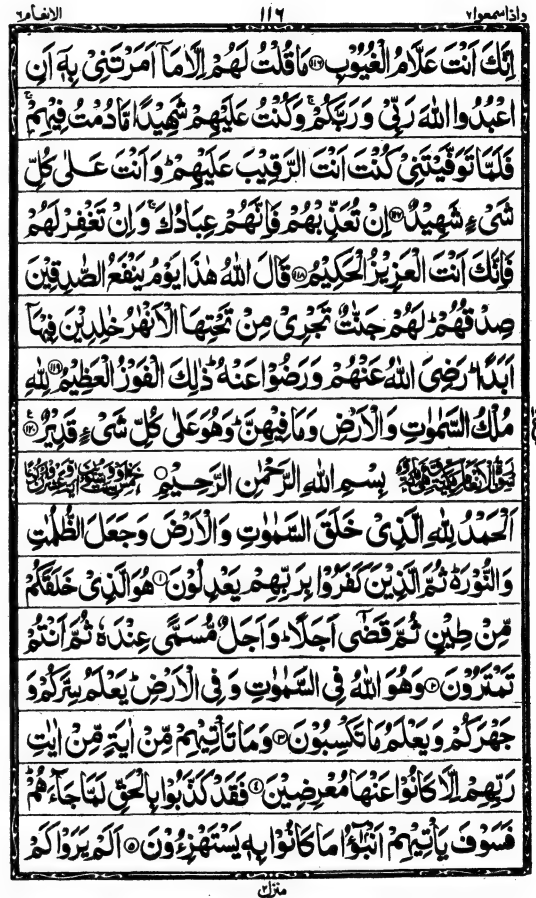 واذاسمعوا٧ ١١٦ الانعام٦
اِنَّكَ اَنْتَ عَلَّامُ الْغُيُوْبِ ۝١١٦ مَا قُلْتُ لَهُمْ اِلَّا مَاۤ اَمَرْتَنِىْ بِهٖۤ اَنِ
اعْبُدُوا اللّٰهَ رَبِّىْ وَرَبَّكُمْ ۚ وَكُنْتُ عَلَيْهِمْ شَهِيْدًا مَّا دُمْتُ فِيْهِمْ ۚ
فَلَمَّا تَوَفَّيْتَنِىْ كُنْتَ اَنْتَ الرَّقِيْبَ عَلَيْهِمْ ؕ وَاَنْتَ عَلٰى كُلِّ
شَىْءٍ شَهِيْدٌ ۝١١٧ اِنْ تُعَذِّبْهُمْ فَاِنَّهُمْ عِبَادُكَ ۚ وَاِنْ تَغْفِرْ لَهُمْ
فَاِنَّكَ اَنْتَ الْعَزِيْزُ الْحَكِيْمُ ۝١١٨ قَالَ اللّٰهُ هٰذَا يَوْمُ يَنْفَعُ الصّٰدِقِيْنَ
صِدْقُهُمْ ؕ لَهُمْ جَنّٰتٌ تَجْرِىْ مِنْ تَحْتِهَا الْاَنْهٰرُ خٰلِدِيْنَ فِيْهَاۤ
اَبَدًا ؕ رَضِىَ اللّٰهُ عَنْهُمْ وَرَضُوْا عَنْهُ ؕ ذٰلِكَ الْفَوْزُ الْعَظِيْمُ ۝١١٩ لِلّٰهِ
مُلْكُ السَّمٰوٰتِ وَالْاَرْضِ وَمَا فِيْهِنَّ ؕ وَهُوَ عَلٰى كُلِّ شَىْءٍ قَدِيْرٌ ۝١٢٠
بِسْمِ اللّٰهِ الرَّحْمٰنِ الرَّحِيْمِ
اَلْحَمْدُ لِلّٰهِ الَّذِىْ خَلَقَ السَّمٰوٰتِ وَالْاَرْضَ وَجَعَلَ الظُّلُمٰتِ
وَالنُّوْرَ ؕ ثُمَّ الَّذِيْنَ كَفَرُوْا بِرَبِّهِمْ يَعْدِلُوْنَ ۝١ هُوَ الَّذِىْ خَلَقَكُمْ
مِّنْ طِيْنٍ ثُمَّ قَضٰۤى اَجَلًا ؕ وَاَجَلٌ مُّسَمًّى عِنْدَهٗ ثُمَّ اَنْتُمْ
تَمْتَرُوْنَ ۝٢ وَهُوَ اللّٰهُ فِى السَّمٰوٰتِ وَفِى الْاَرْضِ ؕ يَعْلَمُ سِرَّكُمْ وَ
جَهْرَكُمْ وَيَعْلَمُ مَا تَكْسِبُوْنَ ۝٣ وَمَا تَاْتِيْهِمْ مِّنْ اٰيَةٍ مِّنْ اٰيٰتِ
رَبِّهِمْ اِلَّا كَانُوْا عَنْهَا مُعْرِضِيْنَ ۝٤ فَقَدْ كَذَّبُوْا بِالْحَقِّ لَمَّا جَآءَهُمْ ؕ
فَسَوْفَ يَاْتِيْهِمْ اَنْۢبٰٓؤُا مَا كَانُوْا بِهٖ يَسْتَهْزِءُوْنَ ۝٥ اَلَمْ يَرَوْا كَمْ
منزل٢